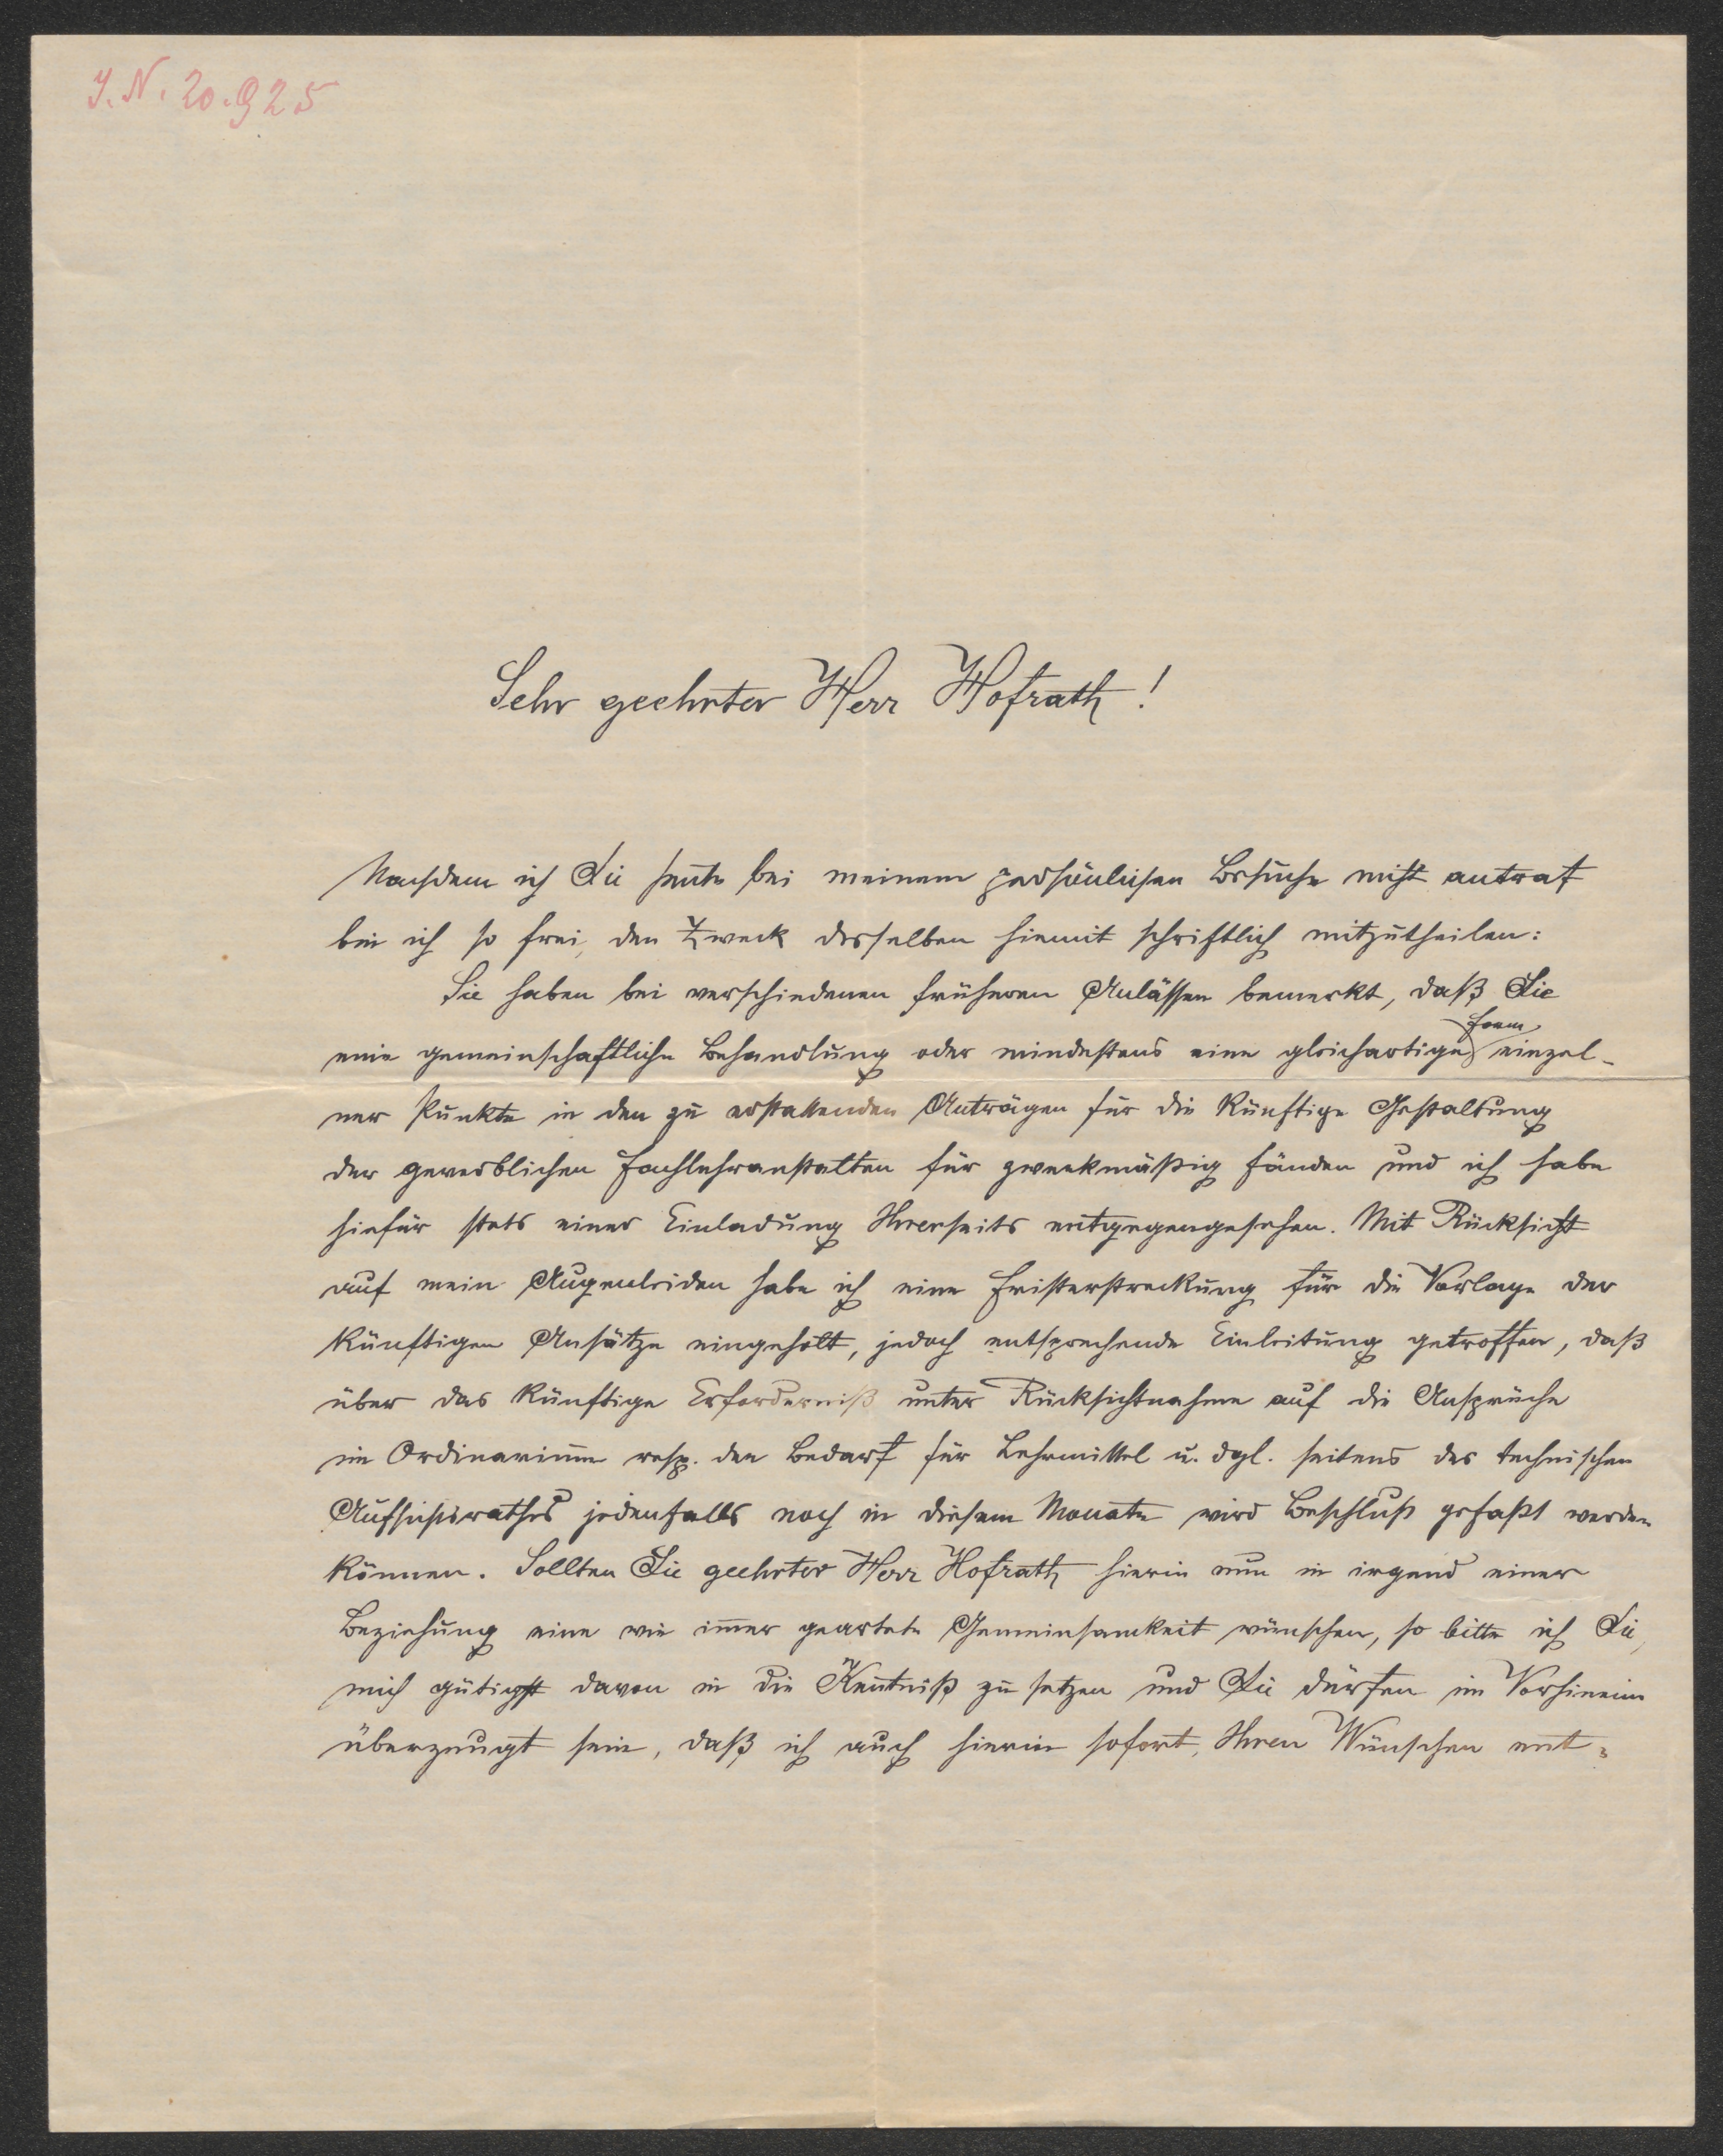 J. N. 20.925
Sehr geehrter Herr Hofrath!
Nachdem ich Sie heute bei meinem persönlichen Besuche nicht antraf
bin ich so frei, den Zweck desselben hiemit schriftlich mitzutheilen:
Sie haben bei verschiedenen früheren Anlässen bemerkt, daß Sie
Form
eine gemeinschaftliche Behandlung oder mindestens eine gleichartige einzel-
ner Punkte in den zu erstattenden Anträgen für die künftige Gestaltung
der gewerblichen Fachlehranstalten für zweckmäßig fänden und ich habe
hiefür stets einer Einladung Ihrerseits entgegengesehen. Mit Rücksicht
auf mein Augenleiden habe ich eine Fristerstreckung für die Vorlage der
künftigen Ansätze eingeholt, jedoch entsprechende Einleitung getroffen, daß
über das künftige Erforderniß unter Rücksichtnahme auf die Ansprüche
im Ordinarium resp. den Bedarf für Lehrmittel u. dgl. seitens des technischen
Aufsichtsrathes jedenfalls noch in diesem Monate wird Beschluß gefaßt werden
können. Sollten Sie geehrter Herr Hofrath hierin nun in irgend einer
Beziehung eine wie immer geartete Gemeinsamkeit wünschen, so bitte ich Sie,
mich gütigst davon in die Kentniß zu setzen und Sie dürfen im Vorhinein
überzeugt sein, daß ich auch hierin sofort, Ihren Wünschen ent-